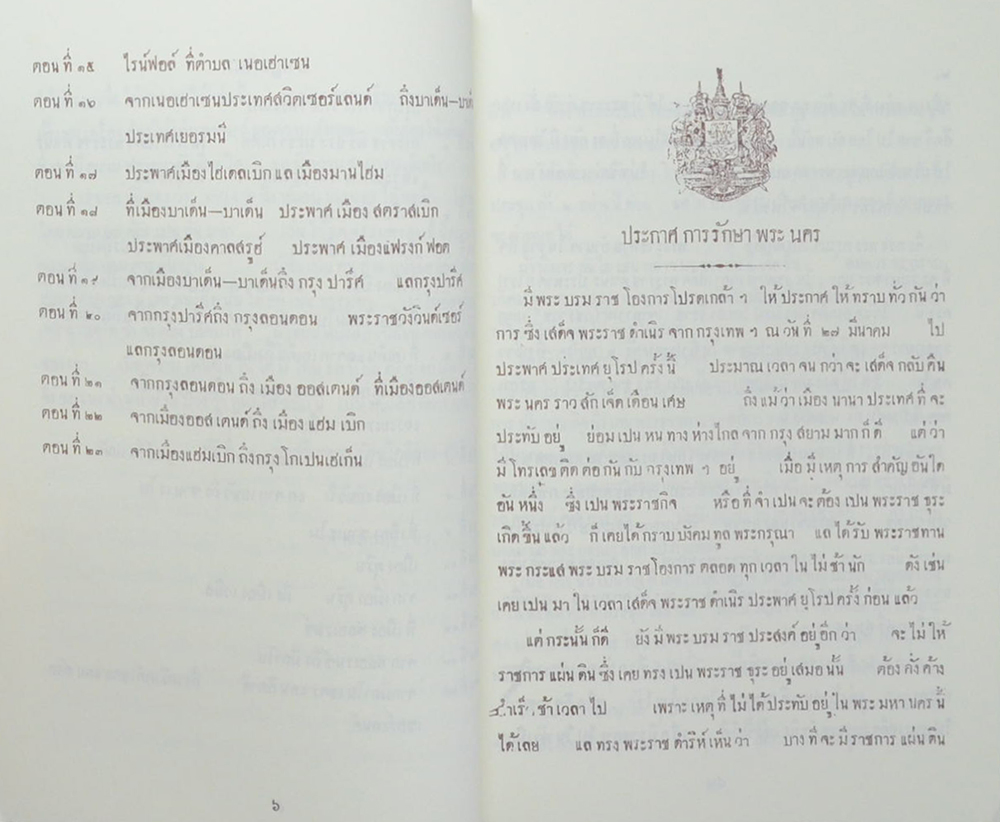 ตอนที่ ๑๕ ไรน์ฟอล์ ที่ตำบล เนอเฮาเซน
ตอนที่ ๑๖ จากเนอเฮาเซนประเทศสวิตเซอร์แลนด์ ถึงบาเด็น—บาเด็น
ประเทศเยอรมนี
ตอนที่ ๑๗ ประพาศเมืองไฮเดลเบิก แล เมืองมานไฮม
ตอนที่ ๑๘ ที่เมืองบาเด็น—บาเด็น ประพาศ เมือง สตราสเบิก
ประพาศเมืองคาลสรูฮ์ ประพาศ เมืองแฟรงก์ฟอต
ตอนที่ ๑๙ จากเมืองบาเด็น—บาเด็นถึง กรุง ปารีศ์ แลกรุงปารีศ์
ตอนที่ ๒๐ จากกรุงปารีศ์ถึง กรุงลอนดอน พระราชวังวินด์เซอร์
แลกรุงลอนดอน
ตอนที่ ๒๑ จากกรุงลอนดอน ถึง เมือง ออสเตนด์ ที่เมืองออสเตนด์
ตอนที่ ๒๒ จากเมืองออสเตนด์ ถึง เมือง แฮม เบิก
ตอนที่ ๒๓ จากเมืองแฮมเบิก ถึงกรุงโกเปนเฮเก็น
๖
ประกาศ การรักษา พระ นคร
มี พระ บรม ราช โองการ โปรดเกล้า ฯ ให้ ประกาศ ให้ ทราบ ทั่ว กัน ว่า
การ ซึ่ง เสด็จ พระราช ดำเนิร จาก กรุงเทพ ฯ ณ วัน ที่ ๒๗ มีนาคม ไป
ประพาศ ประเทศ ยุโรป ครั้ง นี้ ประมาณ เวลา จน กว่า จะ เสด็จ กลับ คืน
พระ นคร ราว สัก เจ็ด เดือน เศษ ถึง แม้ ว่า เมือง นานา ประเทศ ที่ จะ
ประทับ อยู่ ย่อม เปน หน ทาง ห่าง ไกล จาก กรุง สยาม มาก ก็ ดี แต่ ว่า
มี โทรเลข ติด ต่อ กัน กับ กรุงเทพ ฯ อยู่ เมื่อ มี เหตุ การ สำคัญ อัน ใด
อัน หนึ่ง ซึ่ง เปน พระราชกิจ หรือ ที่ จำ เปน จะ ต้อง เปน พระราช ธุระ
เกิด ขึ้น แล้ว ก็ เคย ได้ กราบ บังคม ทูล พระกรุณา แล ได้ รับ พระราชทาน
พระ กระแส พระ บรม ราช โองการ ตลอด ทุก เวลา ใน ไม่ ช้า นัก ดัง เช่น
เคย เปน มา ใน เวลา เสด็จ พระราช ดำเนิร ประพาศ ยุโรป ครั้ง ก่อน แล้ว
แต่ กระนั้น ก็ดี ยัง มี พระ บรม ราช ประสงค์ อยู่ อีก ว่า จะ ไม่ ให้
ราชการ แผ่น ดิน ซึ่ง เคย ทรง เปน พระราช ธุระ อยู่ เสมอ นั้น ต้อง คั่ง ค้าง
ช้า เวลา ไป เพราะ เหตุ ที่ ไม่ ได้ ประทับ อยู่ ใน พระ มหา นคร นี้
ได้ เลย แล ทรง พระราช ดำริห์ เห็น ว่า บาง ที่ จะ มี ราชการ แผ่น ดิน